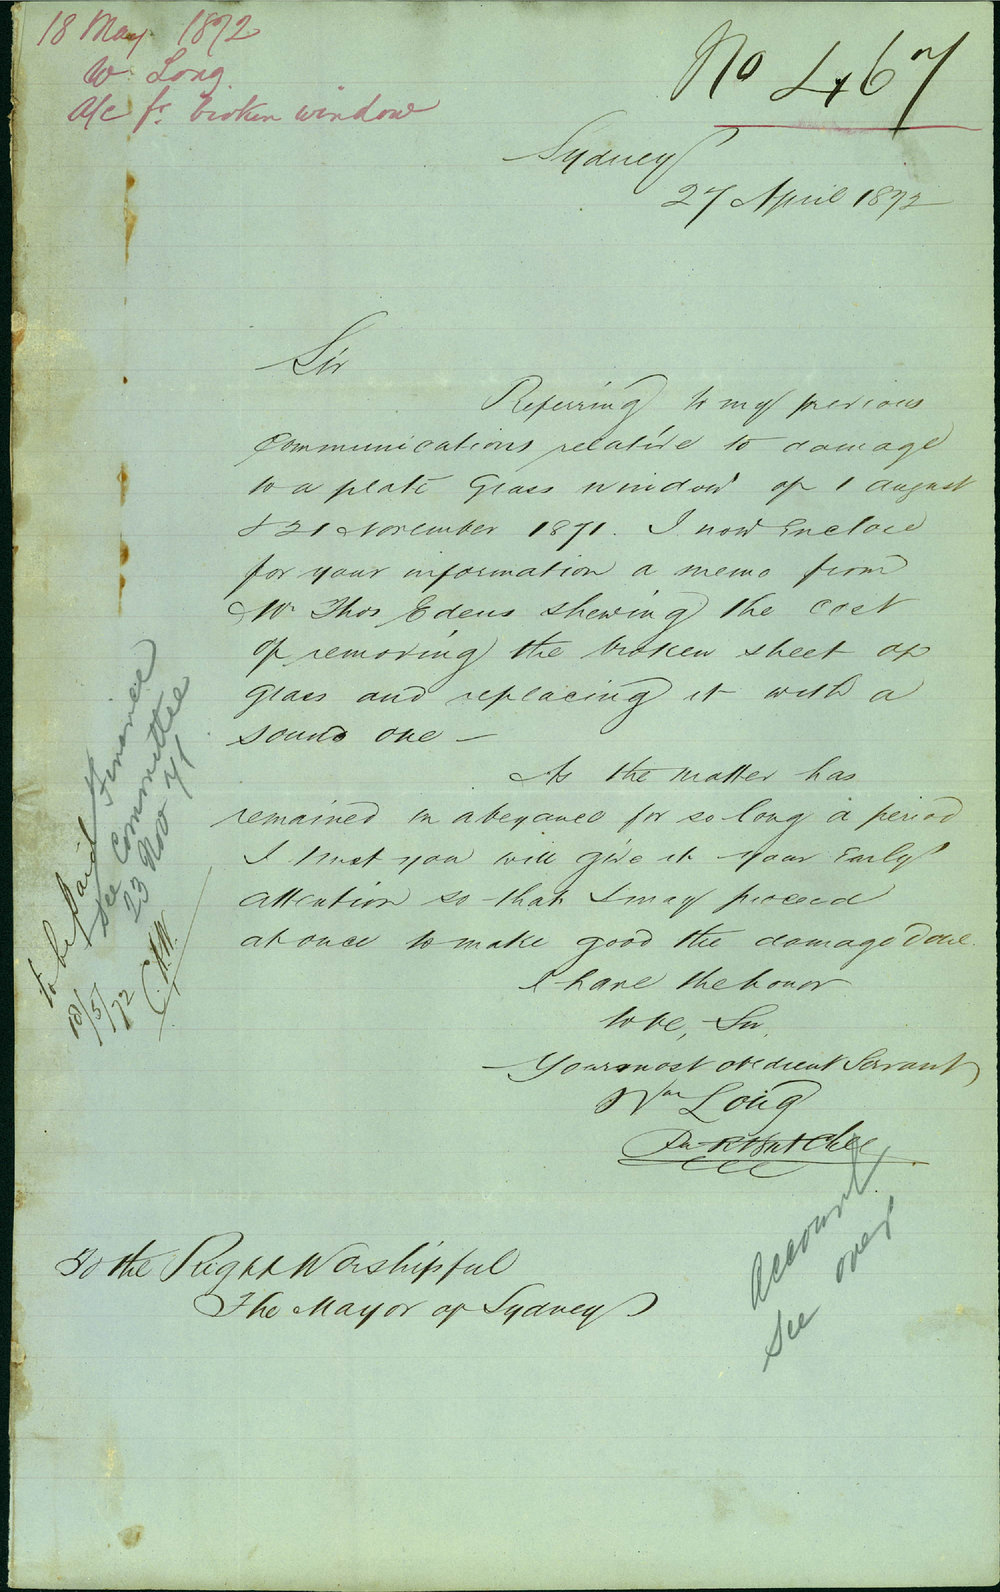 18 May 1872
W. Long
a/c fr. broken window
No 467
Sydney
27 April 1872
Sir
Referring to my previous
communications relative to damage
to a plate Glass window of 1 august
& 21 November 1871. I now Enclose
for your information a memo from
Mr Thos Edens shewing the cost
of removing the broken sheet of
glass and replacing it with a
sound one —
As the matter has
remained in abeyance for so long a period
I trust you will give it your Early
attention so that I may proceed
at once to make good the damage done.
I have the honor
to be, Sir,
Your most obedient Servant
Wm Long
To the Right Worshipful
The Mayor of Sydney
to be paid
18/5/72
see Finance
Committee
23 Nov 71
Account
see over